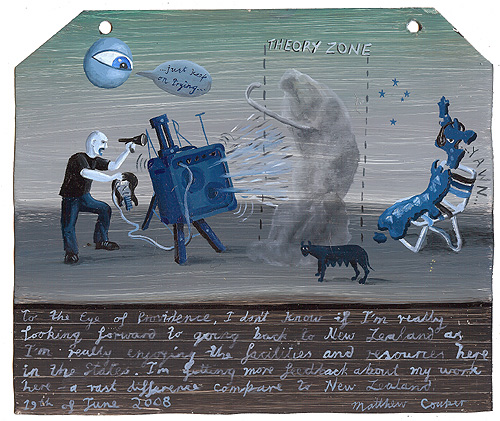 THEORY ZONE
...Just keep
on trying...
To the Eye of Providence, I don't know if I'm really
looking forward to going back to New Zealand as
I'm really enjoying the facilities and resources here
in the States. I'm getting more feedback about my work
here - a vast difference compare to New Zealand
19th of June 2008
Matthew Couper